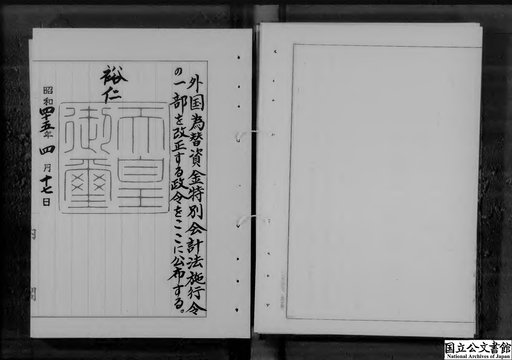 外国為替資金特別会計法施行令
の一部を改正する政令をここに公布する。
裕仁
天皇
御璽
昭和四十五年四月十七日
国立公文書館
National Archives of Japan